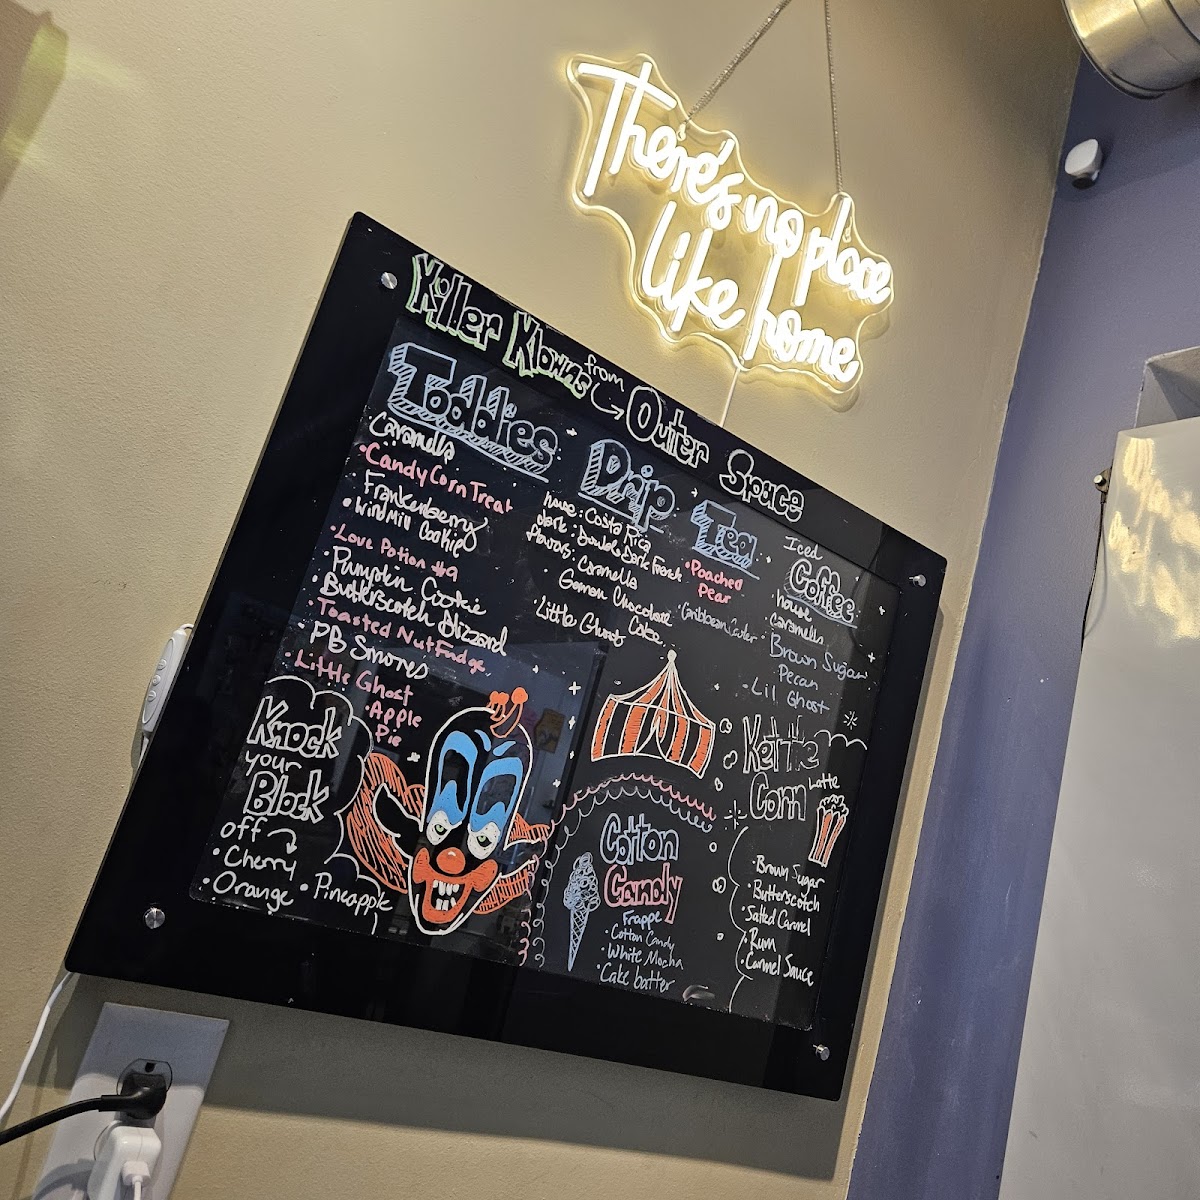 There's no place
like home
Killer Klowns from Outer Space
Toddies
Caramella
Candy Corn Treat
Frankenberry
Windmill Cookie
Love Potion #9
Pumpkin Cookie
Butterscotch Blizzard
Toasted Nut Fudge
PB Smores
Little Ghost
Apple
Pie
Drip
house: Costa Rica
dark: Double Dark French
flavors: Caramella
German Chocolate
Cake
Little Ghost
Tea
Poached
Pear
Iced
Coffee
house
Caramella
Brown Sugar
Pecan
Lil Ghost
Knock
your
Block
off
Cherry
Orange
Pineapple
Cotton
Candy
Frappe
Cotton Candy
White Mocha
Cake batter
Kettle
Corn Latte
Brown Sugar
Butterscotch
Salted Carmel
Rum
Carmel Sauce